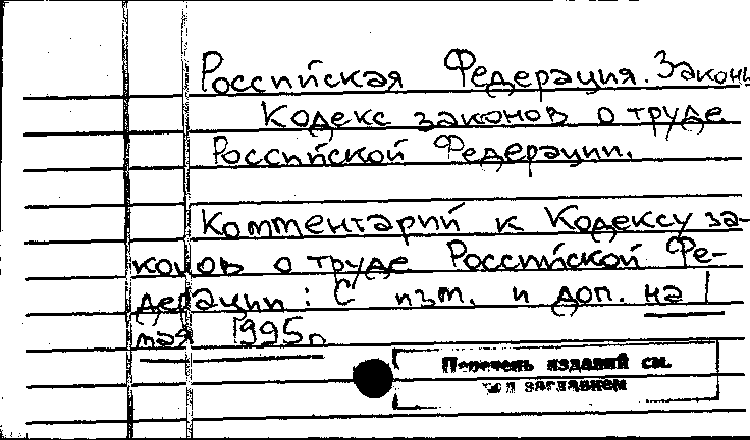 Российская Федерация. Законы
Кодекс законов о труде
Российской Федерации.
Комментарий к Кодексу за-
конов о труде Российской Фе-
дерации: С изм. и доп. на 1
мая 1995г
Перечень изданий см.
под заглавием